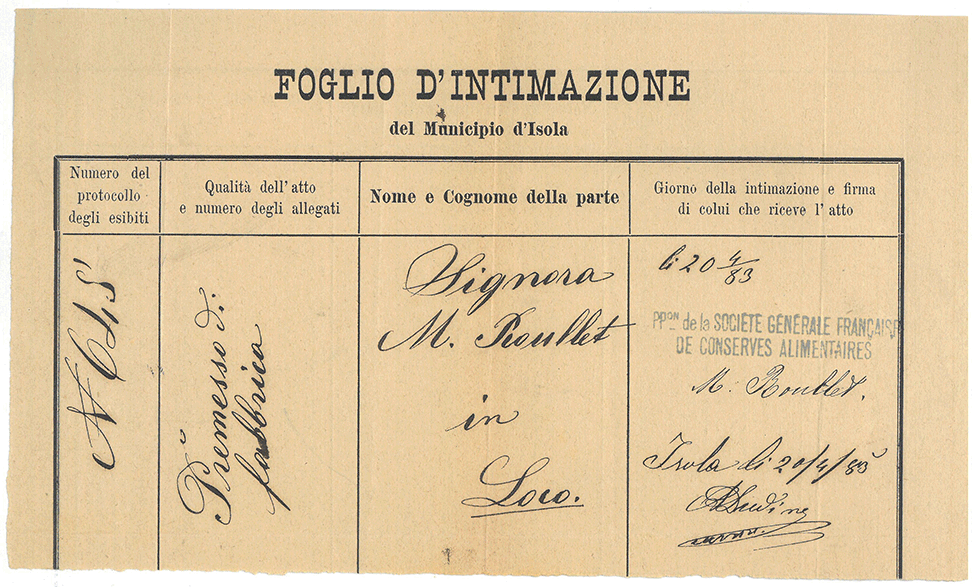 FOGLIO D'INTIMAZIONE
del Municipio d'Isola
Numero del
protocollo
degli esibiti
Qualità dell'atto
e numero degli allegati
Nome e Cognome della parte
Giorno della intimazione e firma
di colui che riceve l'atto
Premesso di
fabbrica
Signora
M. Roullet
in
Loco.
li 20 4/83
PPON de la SOCIÉTÉ GÉNÉRALE FRANÇAISE
DE CONSERVES ALIMENTAIRES
M. Roullet.
Isola li 20/4/83